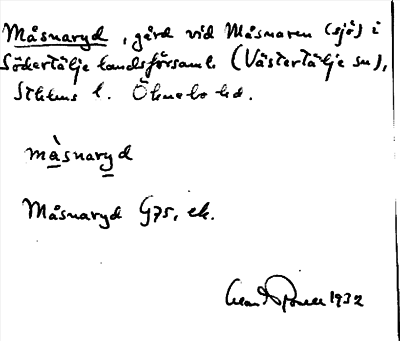 Måsnaryd, gård vid Måsnaren (sjö) i
Södertälje landsförsaml. (Västertälje sn),
Sthlms l. Öknebo hd.
màsnaryd
Måsnaryd G75, ek.
1932